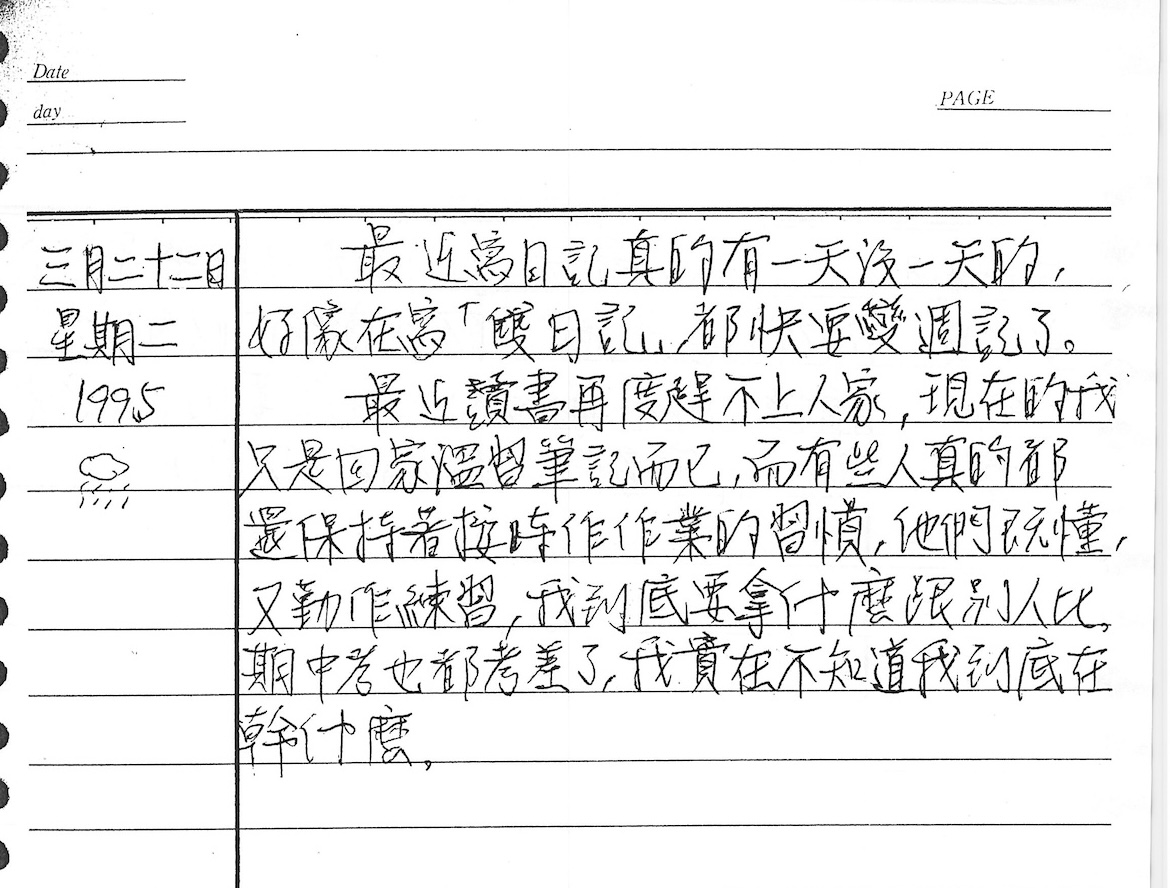 Date
day
PAGE
三月二十二日
星期二
1995
最近寫日記真的有一天沒一天的,
好像在寫「雙日記」,都快要變週記了。
最近讀書再度趕不上人家,現在的我
只是回家溫習筆記而已,而有些人真的都
還保持著按時作作業的習慣,他們既懂,
又勤作練習,我到底要拿什麼跟別人比。
期中考也都考差了,我實在不知道我到底在
幹什麼。